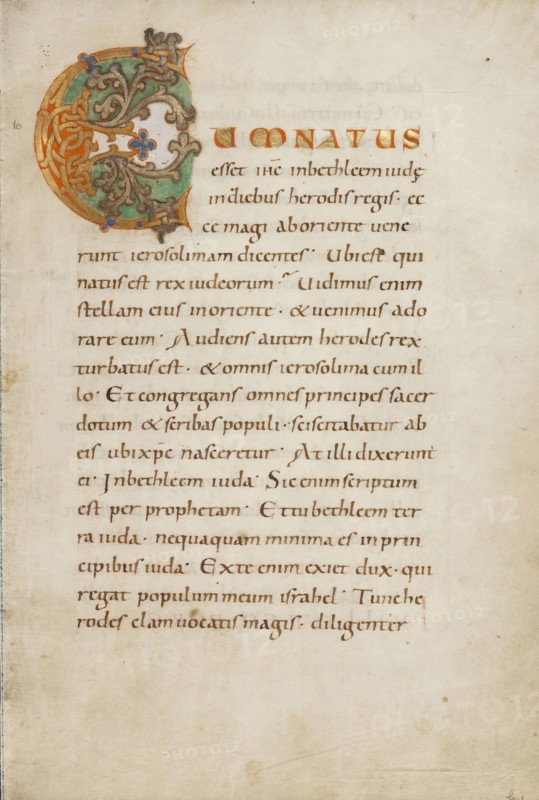 CUM NATUS
esset ihc inbethleem iudę
indiebus herodis regis · ec
ce magi ab oriente uene
runt ierosolimam dicentes · Ubi est qui
natus est rex iudeorum · Uidimus enim
stellam eius in oriente · & uenimus ado
rare eum · Audiens autem herodes rex
turbatus est · & omnis ierosolima cum il
lo · Et congregans omnes principes sacer
dotum & scribas populi · sciscitabatur ab
eis ubi xpc nasceretur · At illi dixerunt
ei · In bethleem iuda · Sic enim scriptum
est per prophetam · Et tu bethleem ter
ra iuda · nequaquam minima es in prin
cipibus iuda · Ex te enim exiet dux · qui
regat populum meum israhel · Tunc he
rodes clam uocatis magis · diligenter
PHOTO12